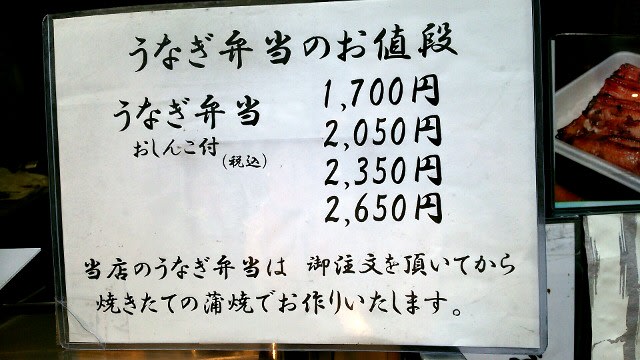 うなぎ弁当のお値段
うなぎ弁当
おしんこ付
(税込)
1,700円
2,050円
2,350円
2,650円
当店のうなぎ弁当は 御注文を頂いてから
焼きたての蒲焼でお作りいたします。